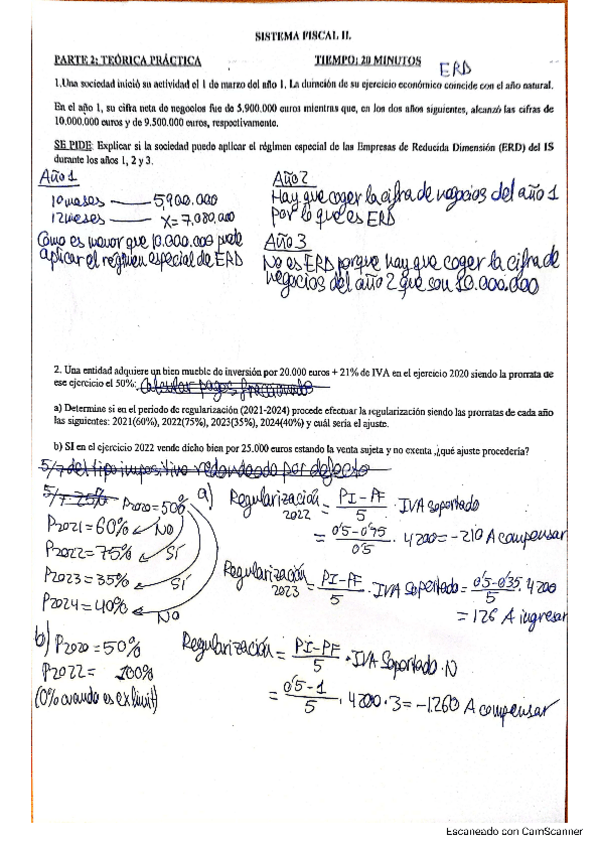 SISTEMA FISCAL II.
PARTE 2: TEÓRICA PRÁCTICA TIEMPO: 20 MINUTOS
ERD
1.Una sociedad inició su actividad el 1 de marzo del año 1. La duración de su ejercicio económico coincide con el año natural.
En el año 1, su cifra neta de negocios fue de 5.900.000 euros mientras que, en los dos años siguientes, alcanzó las cifras de
10.000.000 euros y de 9.500.000 euros, respectivamente.
SE PIDE: Explicar si la sociedad puede aplicar el régimen especial de las Empresas de Reducida Dimensión (ERD) del IS
durante los años 1, 2 y 3.
Año 1
10 meses —— 5,900.000
12 meses —— X = 7,080,000
Como es menor que 10.000.000 puede
aplicar el régimen especial de ERD
Año 2
Hay que coger la cifra de negocios del año 1
por lo que es ERD
Año 3
No es ERD porque hay que coger la cifra de
negocios del año 2 que son 10.000.000
2. Una entidad adquiere un bien mueble de inversión por 20.000 euros + 21% de IVA en el ejercicio 2020 siendo la prorrata de
ese ejercicio el 50%: Calcular pagos fraccionado
a) Determine si en el periodo de regularización (2021-2024) procede efectuar la regularización siendo las prorratas de cada año
las siguientes: 2021(60%), 2022(75%), 2023(35%), 2024(40%) y cuál sería el ajuste.
b) SI en el ejercicio 2022 vende dicho bien por 25.000 euros estando la venta sujeta y no exenta ,¿qué ajuste procedería?
5/7 del tipo impositivo redondeado por defecto
5/7 · 25%
P2020 = 50%
P2021 = 60% No
P2022 = 75% SÍ
P2023 = 35% SÍ
P2024 = 40% No
a) Regularización 2022 = PI-PF / 5 · IVA Soportado
= 0'5-0'75 / 0'5 · 4200 = -210 A compensar
Regularización 2023 = PI-PF / 5 · IVA Soportado = 0'5-0'35 / 5 · 4200
= 126 A ingresar
b) P2020 = 50%
P2022 = 100%
(0% cuando es ex limit)
Regularización = PI-PF / 5 · IVA Soportado · N
= 0'5-1 / 5 · 4200 · 3 = -1.260 A compensar
Escaneado con CamScanner